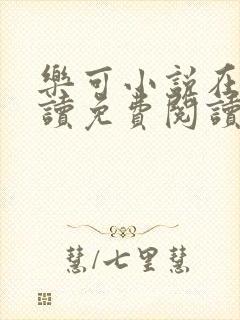 樂可小説在
讀免費閱讀
慧/七里慧